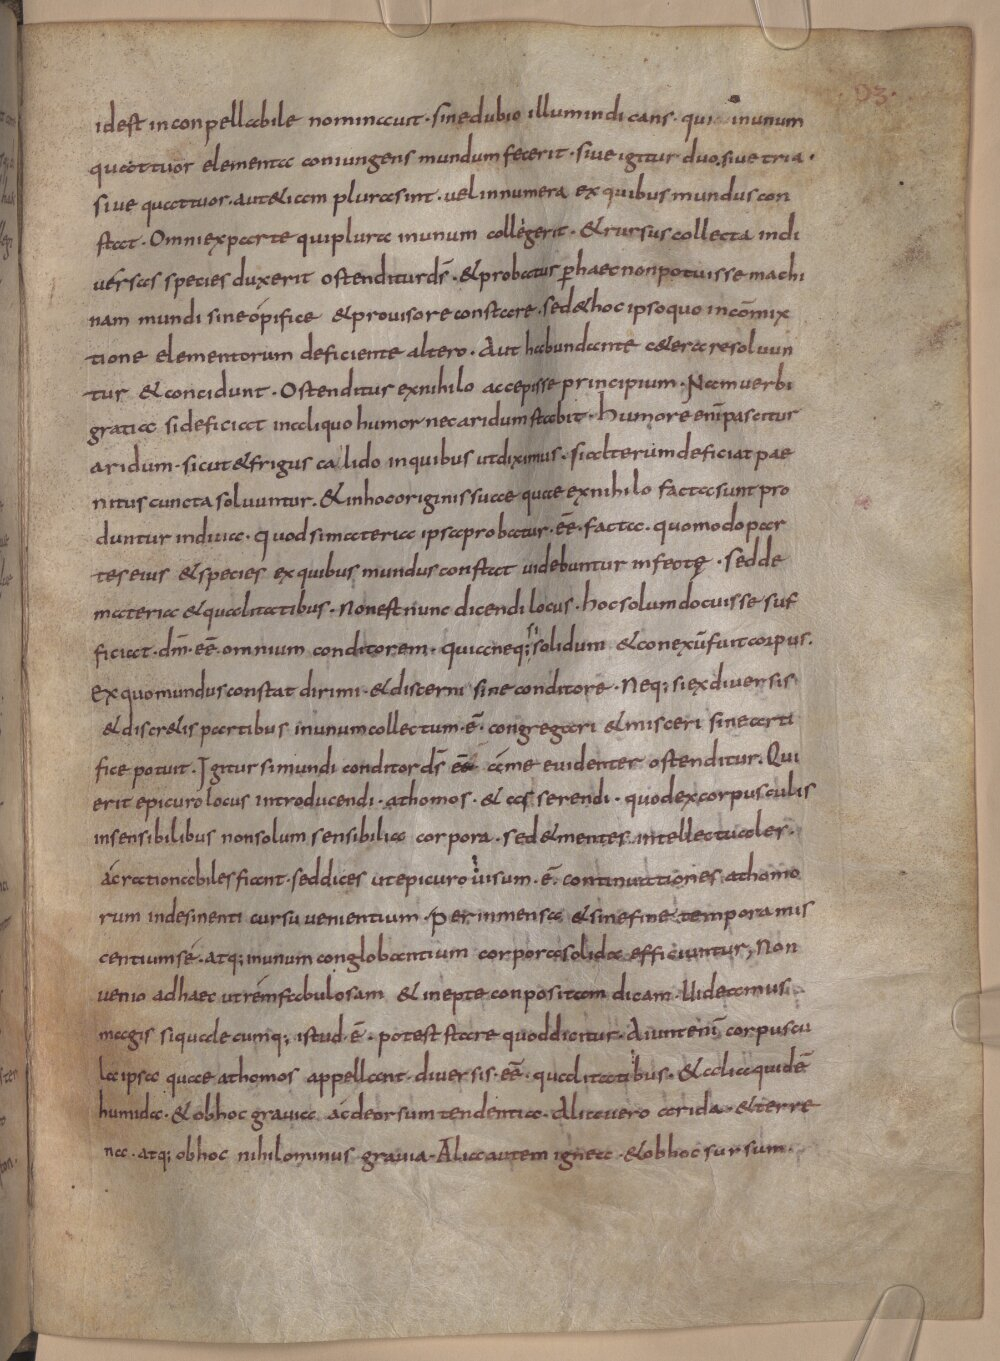 93.
idest inconpellabile nominauit · sinedubio illum indicans · qui inunum
quattuor elementa coniungens mundum fecerit · siue igitur duo, siue tria ·
siue quattuor · aut &iam plura sint · uel innumera ex quibus mundus con
stat · Omni exparte qui plura inunum collegerit · & rursus collecta indi
uersas species duxerit ostenditur ds̄ · & probatur ꝑ haec non potuisse machi
nam mundi sine opifice & prouisore constare · sed & hoc ipso quo in cōmix
tione elementorum deficiente altero · Aut habundante c&era resoluun
tur & concidunt · Ostenditur exnihilo accepisse principium · Nam uerbi
gratia si deficiat inaliquo humor nec aridum stabit · humore enī pascitur
aridum · sicut & frigus calido inquibus ut diximus · si alterum deficiat pae
nitus cuncta soluuntur · & inhoc originis suae quae exnihilo facta sunt pro
duntur indiuia · quod si materia ipsa probatur · eē · facta · quomodo par
tes eius & species ex quibus mundus constat uidebuntur infectę · sed de
materia & qualitatibus · non est nunc dicendi locus · hoc solum docuisse suf
ficiat · dm̄ · eē · omnium conditorem · quia neq; si solidum & conexū fuit corpus ·
Ex quo mundus constat dirimi · & discerni sine conditore · Neq; si ex diuersis
& discr&is partibus inunum collectum · ē · congregari & misceri sine arti
fice potuit · Igitur si mundi conditor ds̄ eē a me euidenter ostenditur · Qui
erit epicuro locus introducendi · athomos · & asserendi · quod ex corpusculis
insensibilibus non solum sensibilia corpora · sed & mentes intellectuales ·
ac rationabiles fiant · sed dices ut epicuro uisum · ē · continuationes athomo
rum indesinenti cursu uenientium · Per inmensa & sine fine tempora mis
centium sé · atq; inunum conglobantium corpora solida efficiuntur, Non
uenio ad haec ut rém fabulosam & inepte conpositam dicam · Uideamus
magis si qualecumq; istud · ē · potest stare quod dicitur · Aiunt enī corpuscu
la ipsa quae athomos appellant · diuersis · eē · qualitatibus · & alia quidē
humida · & ob hoc grauia ac deorsum tendentia · Alia uero arida · & terre
na · atq; ob hoc nihilominus grauia · Alia autem ignea · & ob hoc sursum ·